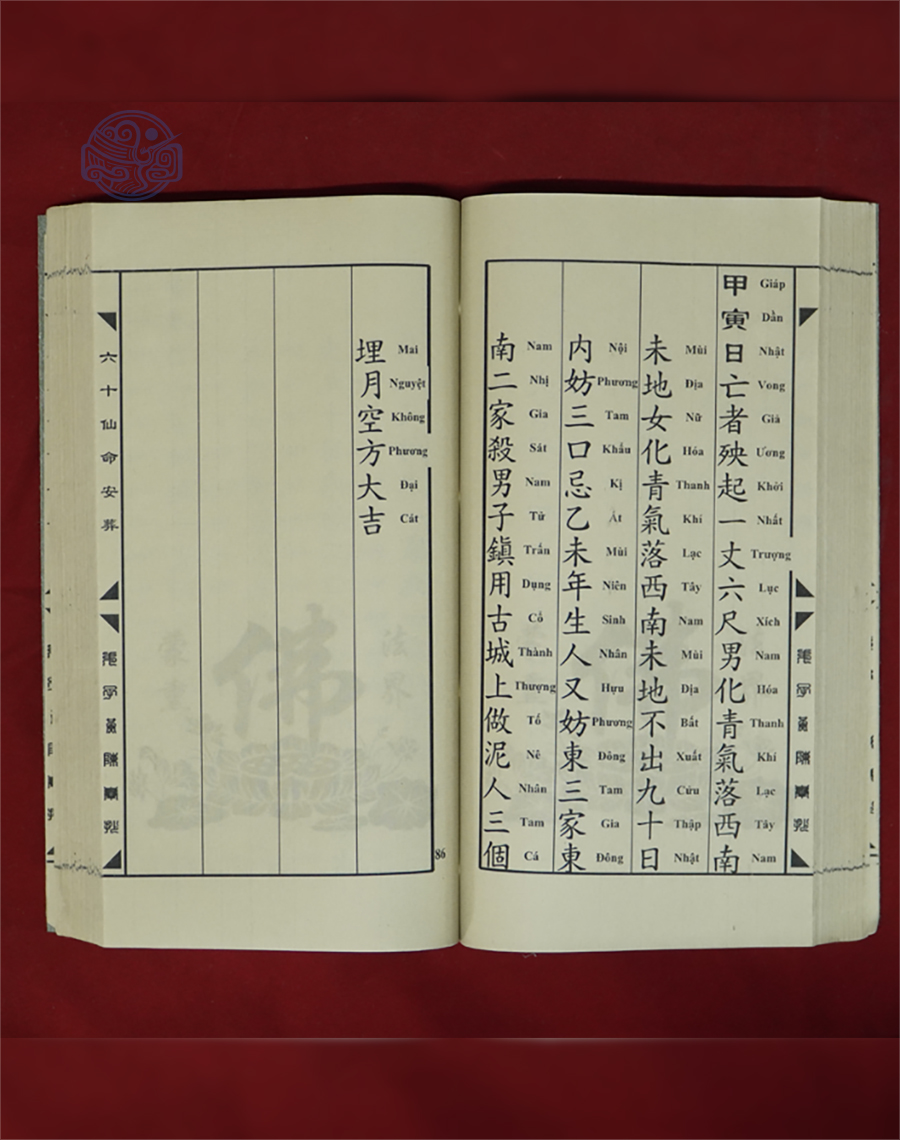 甲寅日亡者殃起一丈六尺男化青氣落西南
Giáp Dần Nhật Vong Giả Ương Khởi Nhất Trượng Lục Xích Nam Hóa Thanh Khí Lạc Tây Nam
未地女化青氣落西南未地不出九十日
Mùi Địa Nữ Hóa Thanh Khí Lạc Tây Nam Mùi Địa Bất Xuất Cửu Thập Nhật
内妨三口忌乙未年生人又妨東三家東
Nội Phương Tam Khẩu Kị Ất Mùi Niên Sinh Nhân Hựu Phương Đông Tam Gia Đông
南二家殺男子鎮用古城上做泥人三個
Nam Nhị Gia Sát Nam Tử Trấn Dụng Cổ Thành Thượng Tố Nê Nhân Tam Cá
埋月空方大吉
Mai Nguyệt Không Phương Đại Cát
86
六十仙命安葬
佛
法界